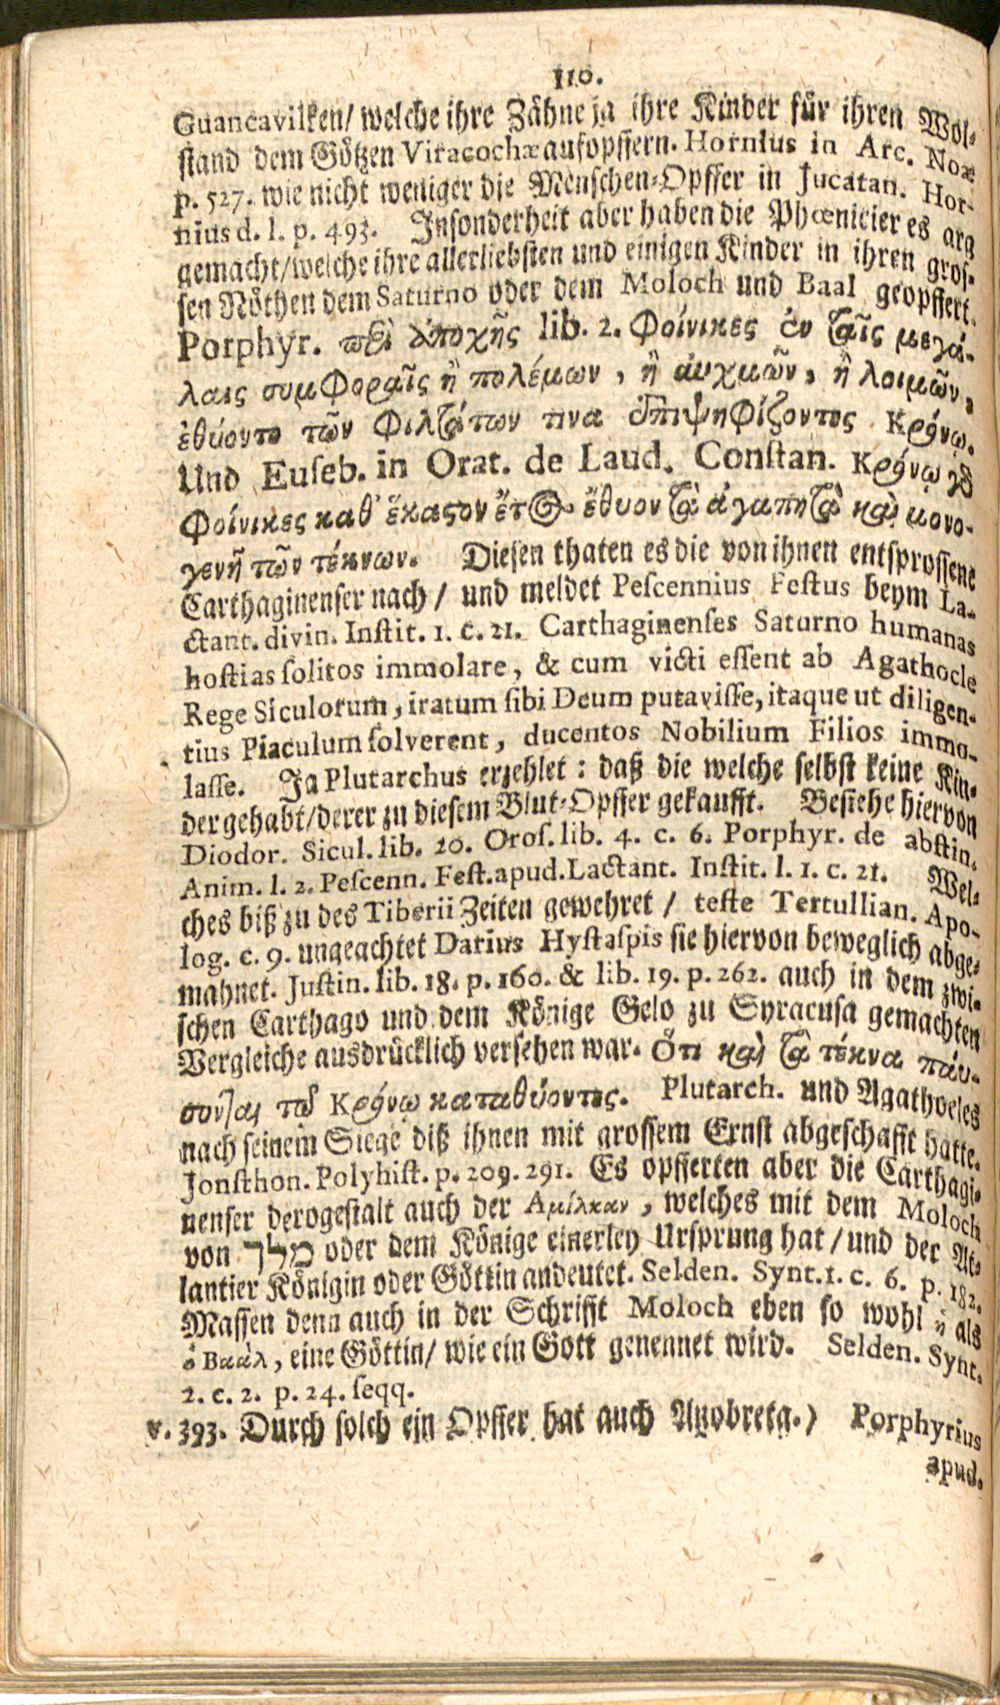 110.
Guancavilken/ welche ihre Zähne ja ihre Kinder für ihren Wol-
stand dem Götzen Viracochæ aufopffern. Hornius in Arc. Noæ
p. 527. wie nicht weniger die Menschen-Opffer in Jucatan. Hor-
nius d. l. p. 493. Insonderheit aber haben die Phœnicier es arg
gemacht/welche ihre allerliebsten und einigen Kinder in ihren gros-
sen Nöthen dem Saturno oder dem Moloch und Baal geopffert.
Porphyr. περὶ ἀποχῆς lib. 2. Φοίνικες ἐν ταῖς μεγά-
λαις συμφοραῖς ἢ πολέμων, ἢ αὐχμῶν, ἢ λοιμῶν,
ἐθύοντο τῶν φιλτάτων τινα ἐπιψηφίζοντες Κρόνῳ.
Und Euseb. in Orat. de Laud. Constan. Κρόνῳ γὸ
Φοίνικες καθ' ἕκαστον ἔτος ἔθυον τὰ ἀγαπητὰ καὶ μονο-
γενῆ τῶν τέκνων. Diesen thaten es die von ihnen entsprossene
Carthaginenser nach / und meldet Pescennius Festus beym La-
ctant. divin. Instit. 1. c. 21. Carthaginenses Saturno humanas
hostias solitos immolare, & cum victi essent ab Agathocle
Rege Siculorum, iratum sibi Deum putavisse, itaque ut diligen-
tius Piaculum solverent, ducentos Nobilium Filios immo-
lasse. Ja Plutarchus erzehlet: daß die welche selbst keine Kin-
der gehabt/derer zu diesem Blut-Opffer gekaufft. Besiehe hiervon
Diodor. Sicul. lib. 20. Oros. lib. 4. c. 6. Porphyr. de abstin.
Anim. l. 2. Pescenn. Fest. apud. Lactant. Instit. l. 1. c. 21. Wel-
ches biß zu des Tiberii Zeiten gewehret / teste Tertullian. Apo-
log. c. 9. ungeachtet Darius Hystaspis sie hiervon beweglich abge-
mahnet. Justin. lib. 18. p. 160. & lib. 19. p. 262. auch in dem zwi-
schen Carthago und dem Könige Gelo zu Syracusa gemachten
Vergleiche ausdrücklich versehen war. Ὅτι καὶ τὰ τέκνα παύ-
σονται τῷ Κρόνῳ καταθύοντες. Plutarch. und Agathocles
nach seinem Siege diß ihnen mit grossem Ernst abgeschafft hatte.
Jonsthon. Polyhist. p. 209. 291. Es opfferten aber die Carthagi-
nenser derogestalt auch der Αμίλκαν, welches mit dem Moloch
von מלך oder dem Könige einerley Ursprung hat / und der At-
lantier Königin oder Göttin andeutet. Selden. Synt. 1. c. 6. p. 182.
Massen denn auch in der Schrifft Moloch eben so wohl ἡ als
ὁ Βαάλ, eine Göttin/ wie ein Gott genennet wird. Selden. Synt.
2. c. 2. p. 24. seqq.
v. 393. Durch solch ein Opffer hat auch Anobreta.) Porphyrius
apud.